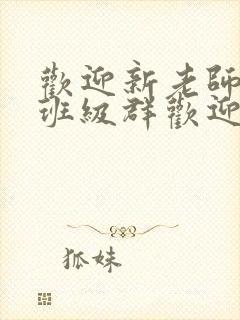 歡迎新老師
班級群歡迎
狐妹